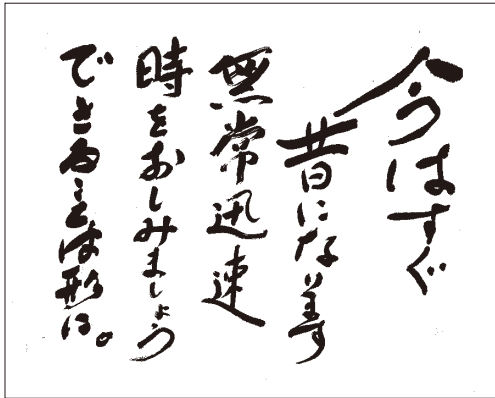 今はすぐ
昔になります
無常迅速
時をおしみましょう
でき 形は。